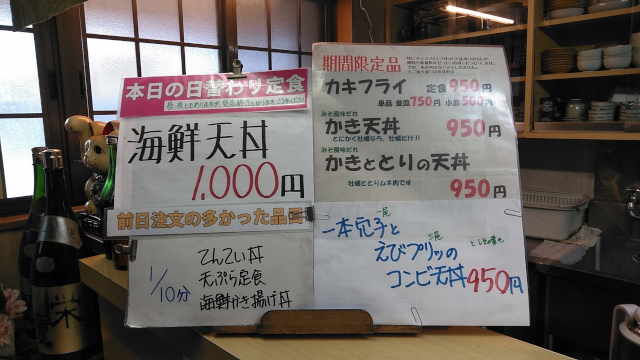 本日の日替わり定食
海鮮天丼
1,000円
前日注文の多かった品目
1/10分
てんてい丼
天ぷら定食
海鮮かき揚げ丼
期間限定品
カキフライ 定食950円
単品 並皿750円 小皿500円
みそ風味だれ
かき天丼 950円
とにかく牡蠣なら、牡蠣だけ!!
みそ風味だれ
かきととりの天丼
牡蠣ととりムネ肉です 950円
一尾
一本穴子と
三尾
えびプリッの
コンビ天丼950円